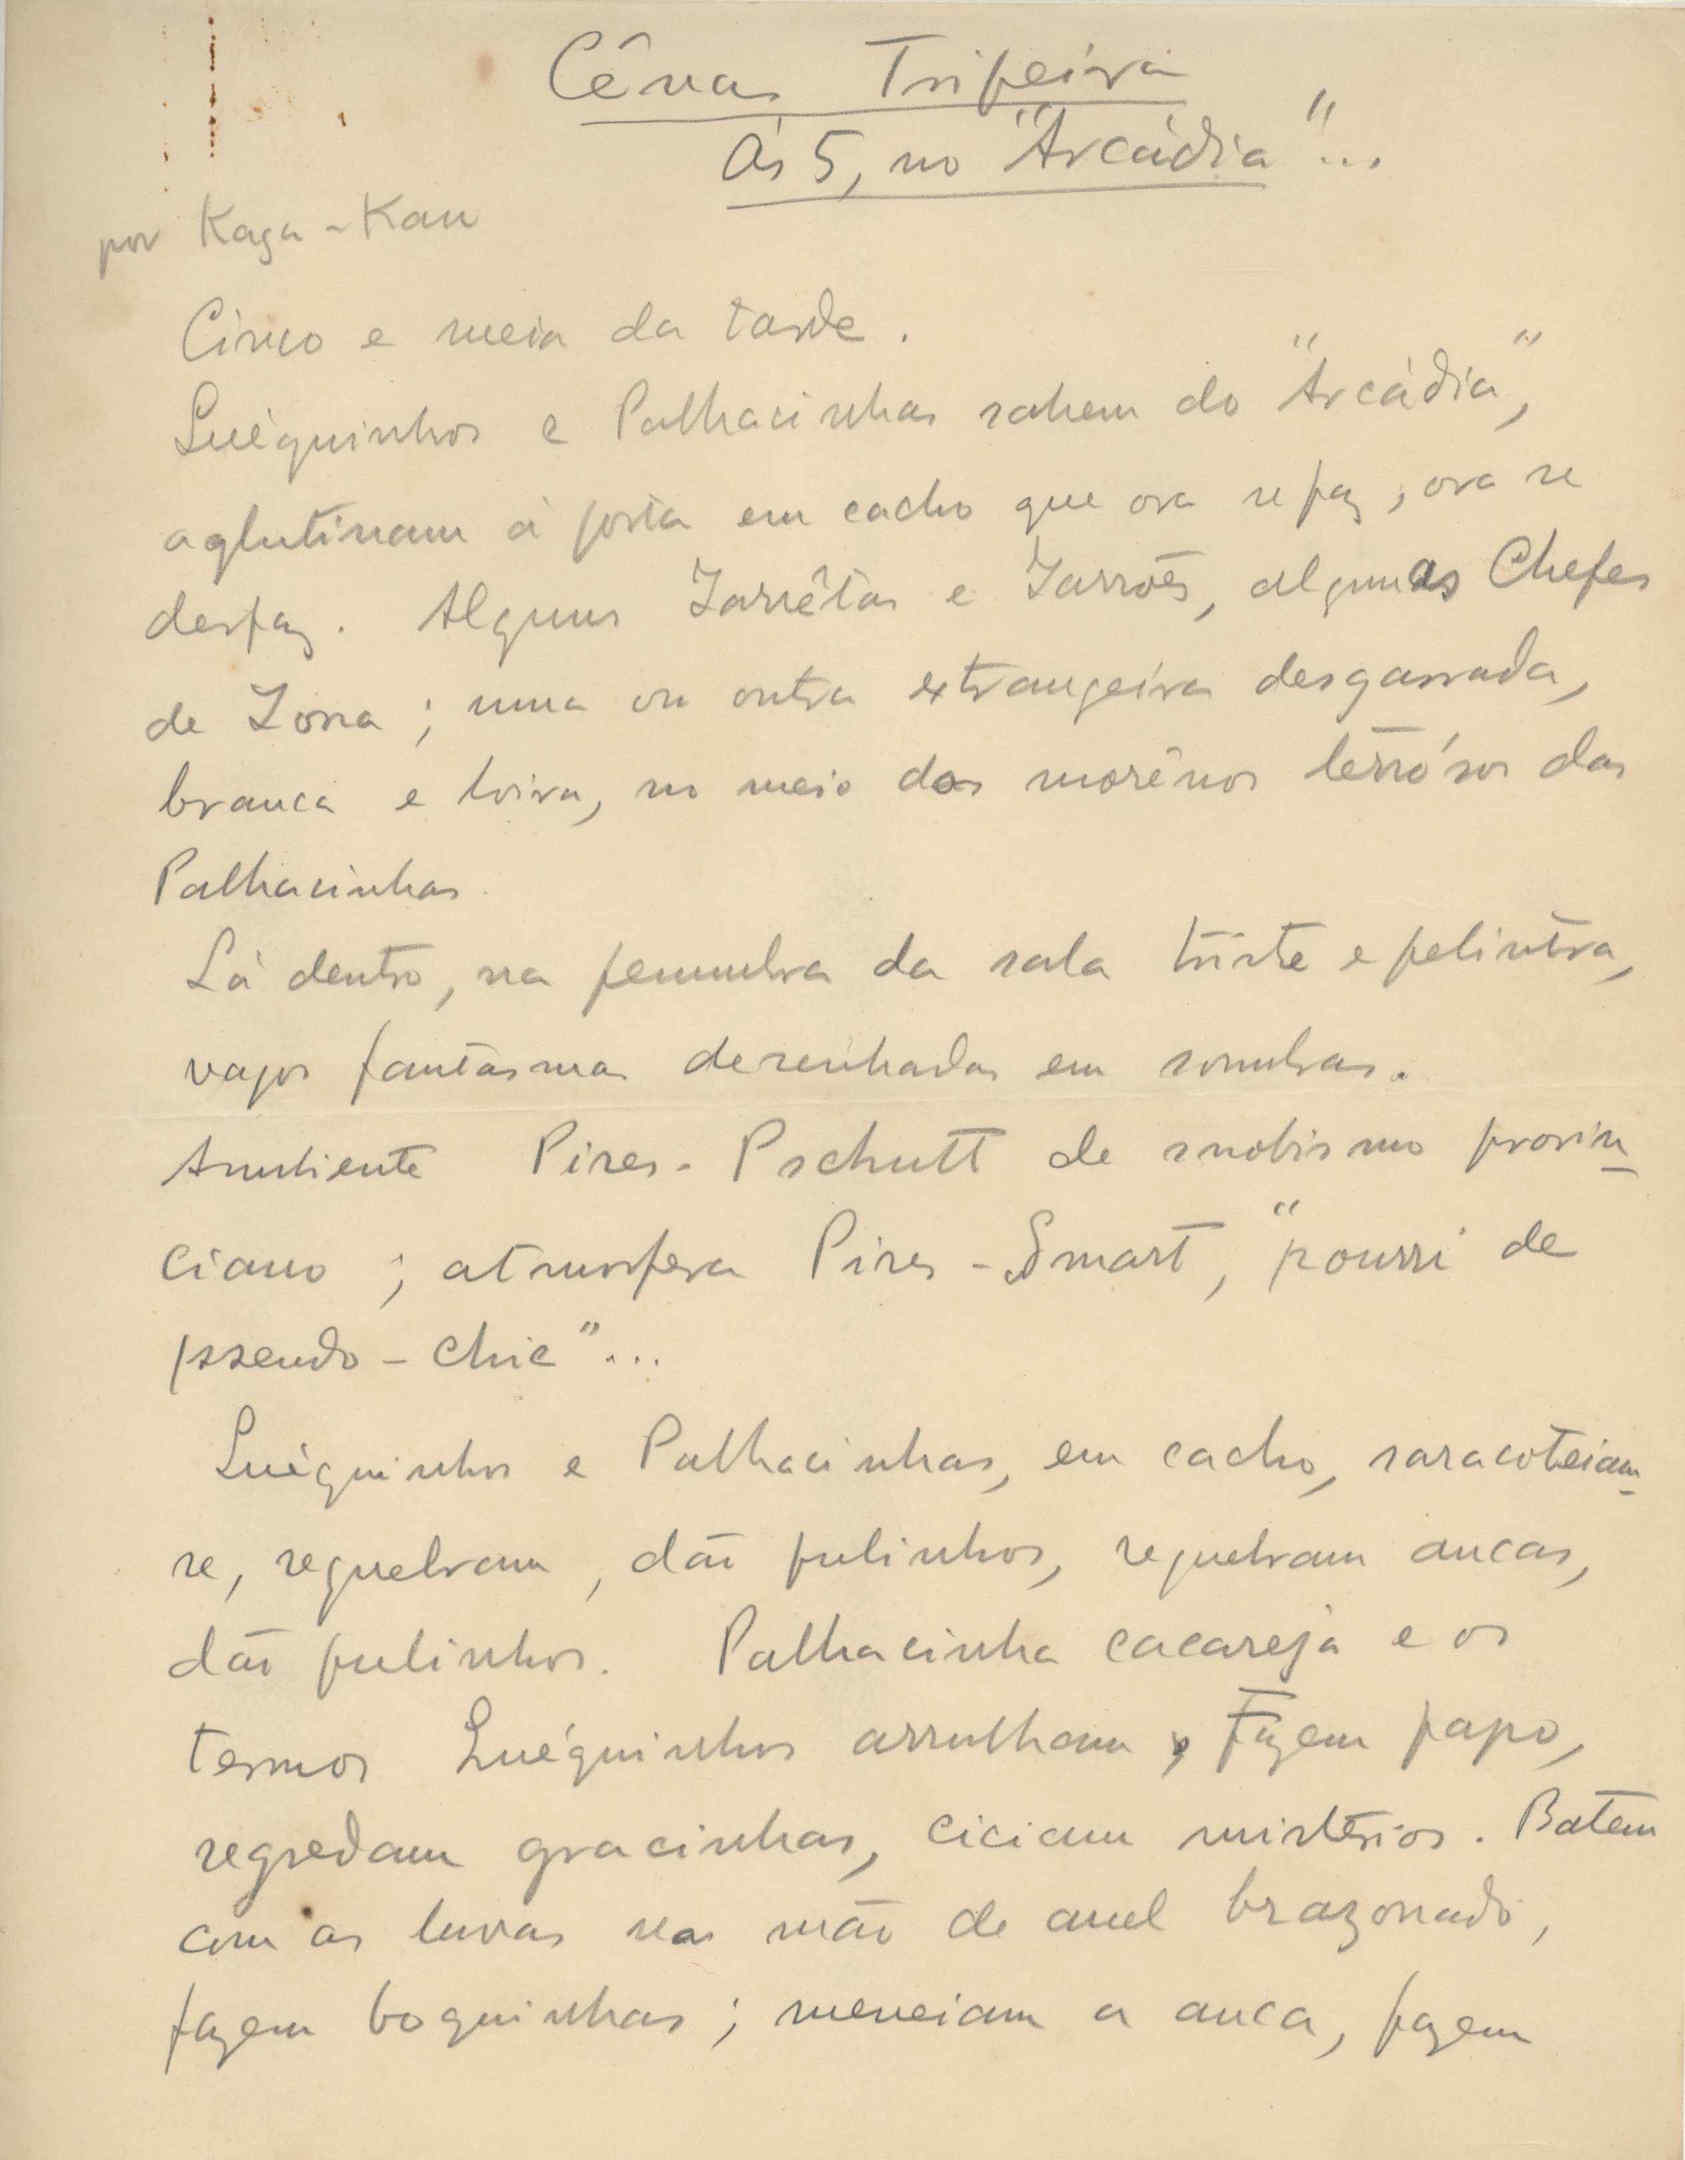 Cênas Tripeira
Ás 5, no "Arcádia"...
por Kaga-Kau
Cinco e meia da tarde.
Luéquinhos e Palhacinhas sahem do "Arcádia",
aglutinam á porta em cacho que ora se faz, ora se
desfaz. Alguns Jarrêtas e Jarrões, algumas Chefes
de Zona; uma ou outra extrangeira desgarrada,
branca e loira, no meio dos morênos terrósos das
Palhacinhas.
Lá dentro, na penumbra da sala triste e pelintra,
vagos fantasmas desenhados em sombras.
Ambiente Pires-Pschutt de snobismo provin-
ciano; atmosfera Pires-Smart, "pourri de
pseudo-chic"...
Luéquinhos e Palhacinhas, em cacho, saracoteiam-
se, requebram, dão pulinhos, requebram ancas,
dão pulinhos. Palhacinha cacareja e os
ternos Luéquinhos arrulham, Fazem papo,
segredam gracinhas, ciciam mistérios. Batem
com as luvas nas mão de anel brazonado,
fazem boquinhas; meneiam a anca, fazem